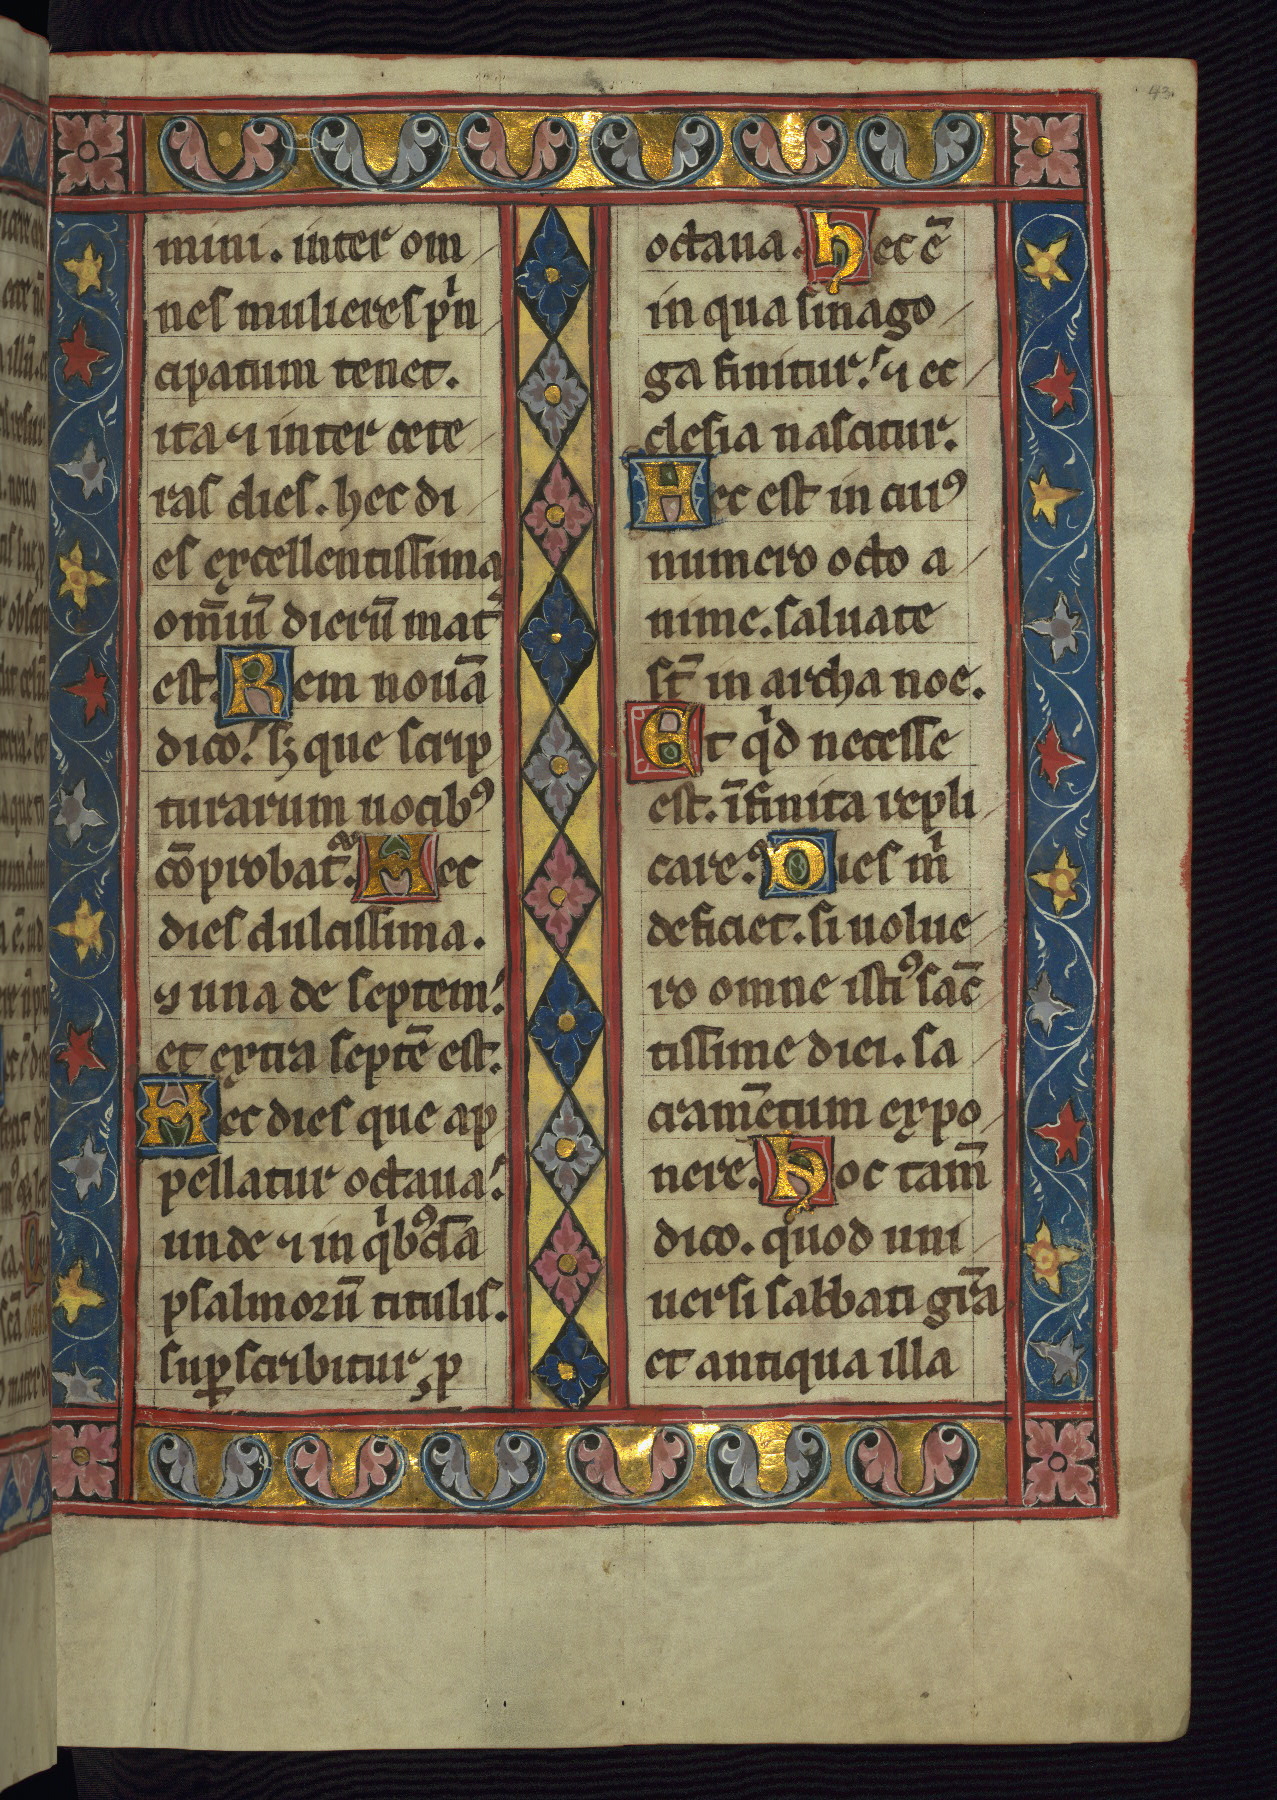 43
mini. inter om
nes mulieres pⁱn
cipatum tenet.
ita ⁊ inter cete
ras dies. hec di
es excellentissima
om̅iu̅ dieru̅ mat᷑
est. Rem noua̅
dico. sꝫ que scrip
turarum uocibꝰ
co̅probat᷑. Hec
dies dulcissima.
⁊ una de septem.
et extra septe̅ est.
Hec dies que ap
pellatur octaua.
unde ⁊ in qⁱbꝰda̅
psalmoru̅ titulis.
suꝑscribitur, p
octaua. Hec e̅
in qua sinago
ga finitur. ⁊ ec
clesia nascitur.
Hec est in cuiꝰ
numero octo a
nime. saluate
st̅ in archa noe.
Et qⁱd necesse
est. i̅finita repli
care. Dies mⁱ
deficiet. si uolue
ro omne istiꝰ sac̅
tissime diei. sa
crame̅tum expo
nere. Hoc tam̅
dico. quod uni
uersi sabbati gr̅a
et antiqua illa